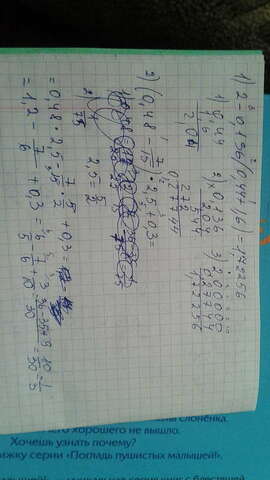 1) 2 - 0,136(0,44+1,6)=1,72256
1) 0,44
1,6
2,04
2) 0,136
2,04
544
272
0,27744
3) 2,00000
0,27744
1,72256
2) (0,48 - 7/15) · 2,5 + 0,3 =
2,5 = 5/2
= 0,48 · 2,5 - 7/15 · 5/2 + 0,3 =
= 1,2 - 7/6 + 0,3 = 6/5 - 7/6 + 3/10 = 36-35+9/30 = 10/30 = 1/3
слонёнка.
хорошего не вышло.
Хочешь узнать почему?
ижку серии «Погладь пушистых малышей!».